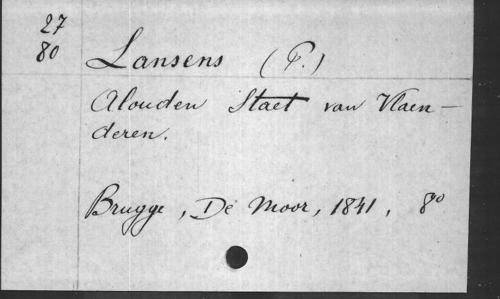 27
80
Lansens (P.)
Alouden Staet van Vlaen-
deren.
Brugge, De Moor, 1841, 8°